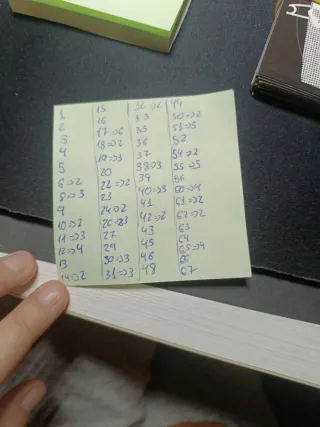 1
2
3
4
5
6=>2
8=>3
9
10=>2
11=>3
12=>4
13
14=>2
15
16
17=>6
18=>2
19=>3
20
22=>2
23
24=>2
26=>3
27
29
30=>3
31=>3
32=>6
33
35
36
37
38=>3
39
40=>5
41
42=>2
43
45
46
48
49
50=>2
51=>5
52
54=>2
55=>5
56
60=>4
61=>2
62=>2
63
64
65=>4
66
67